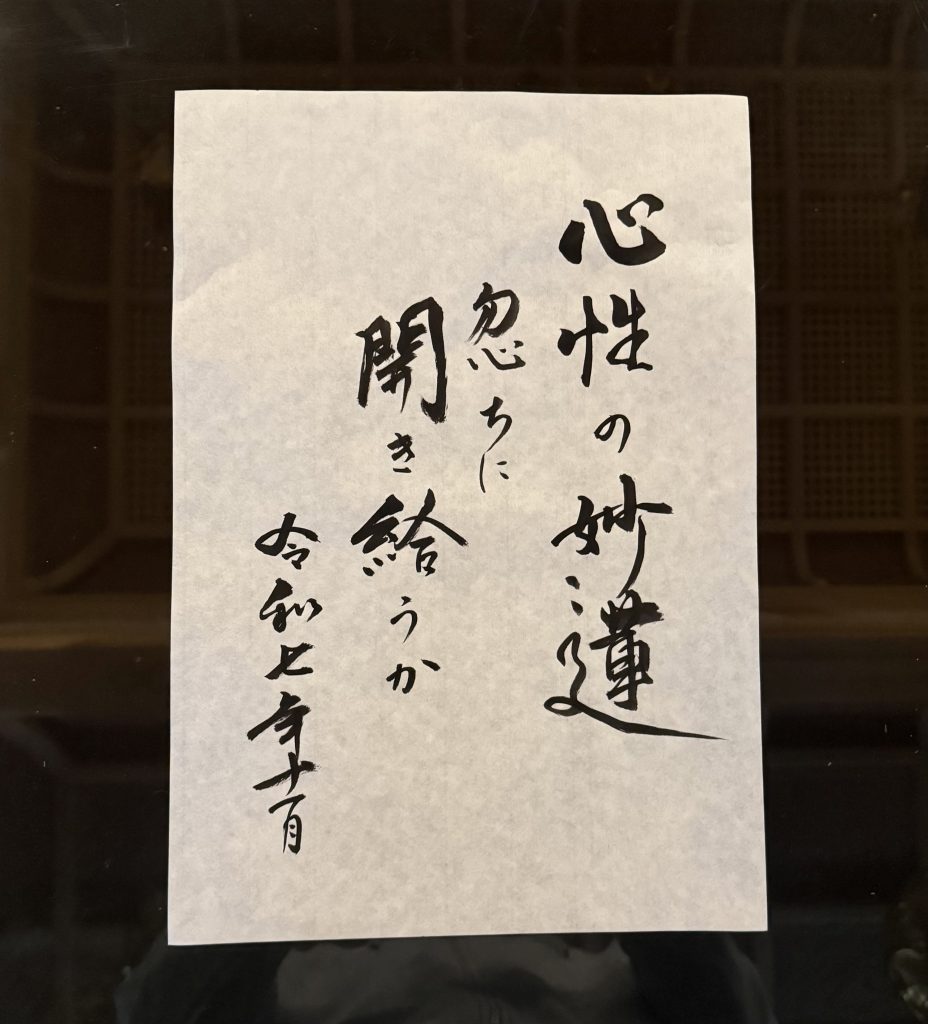 心性の妙蓮
忽ちに
開き給うか
令和七年十一月